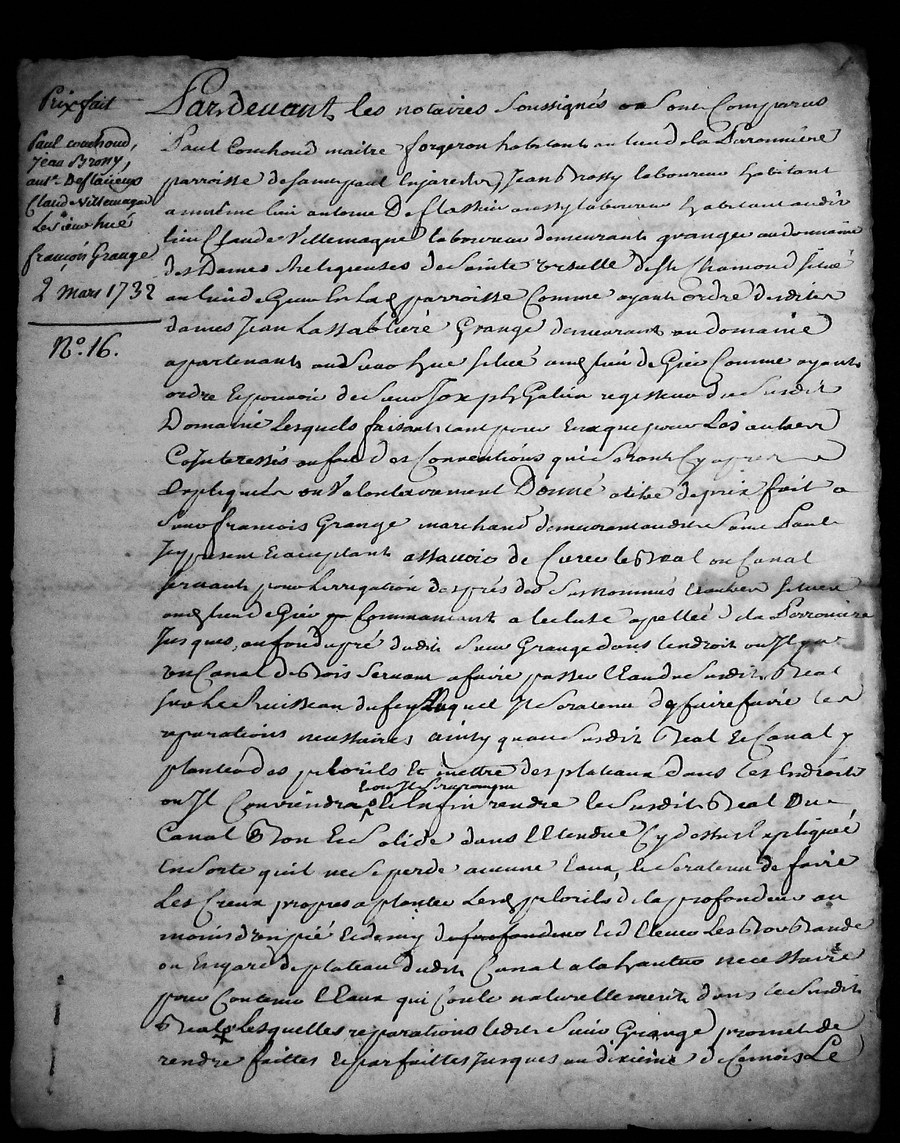 Prix fait
Paul couchoud,
Jean Brossy,
ant.e Deflassieux
Claude Villemagne
Le Sieur hué
françois Grange
2 mars 1732
N.o 16.
Pardevant les notaires Soussignés on Sont Comparus
Paul Couchoud maitre forgeron habitant au lieu de la
parroisse de Saint paul En jarest Jean Brossy laboureur habitant
au même lieu antoine Deflassieu aussy laboureur habitant audit
lieu Claude Villemagne laboureur demeurants granger au domaine
des Dames Religieuses de Sainte Ursulle de St Chamond Situé
au lieu de parroisse Comme ayant ordre desdites
dames Jean Lassabliere Grangé demeurant au domaine
apartenant au Sieur hue Situé de Gris Comme ayants
ordre Epouvoir de Sieur Joseph Galien regisseur du Susdit
Domaine Lesquels faisant tant pour Eux que pour Les autres
CoInteressés au fait des Conventions qui Seront Cy apres
Expliquées on Volontairement Donné a titre de prix fait a
Sieur francois Grange marchand demeurant audit Saint Paul
Icy present Et acceptant assavoir de Curer le Beal ou Canal
servant pour Lirrigation des prés des Susnommés Et autres Situés
Commencant a lecluse apellée de la
Jusques au fond du pré dudit Sieur Grange dans lendroit ou Il y a
un Canal de Bois Servant a faire passer lEau du Susdit Beal
Sur Le Ruisseau du fey Auquel Il Sera tenu dy faire faire les
reparations necessaires ainsy quau Susdit Beal Et Canal y
planter des pilorils Et mettre des plateaux dans les Endroits
ou Il Conviendra Et Enfin rendre le Susdit Beal Ou
Canal Bon Et Solide dans lEtendue Cy dessus Expliquée
En Sorte quil ne Se perde aucune Eaux, Et Sera tenu de faire
Les Creux propres a planter Lesd pilorils de la profondeur au
moins dun pié Et demy de profondeur Et dElever Les
ou Engard de plateau dudit Canal a la hauteur necessaire
pour Contenir lEaux qui Coule naturellement dans le Susdit
Beal Lesquelles reparations ledit Sieur Grange promet de
rendre faittes Et parfaittes Jusques au dixieme de Ce mois Le